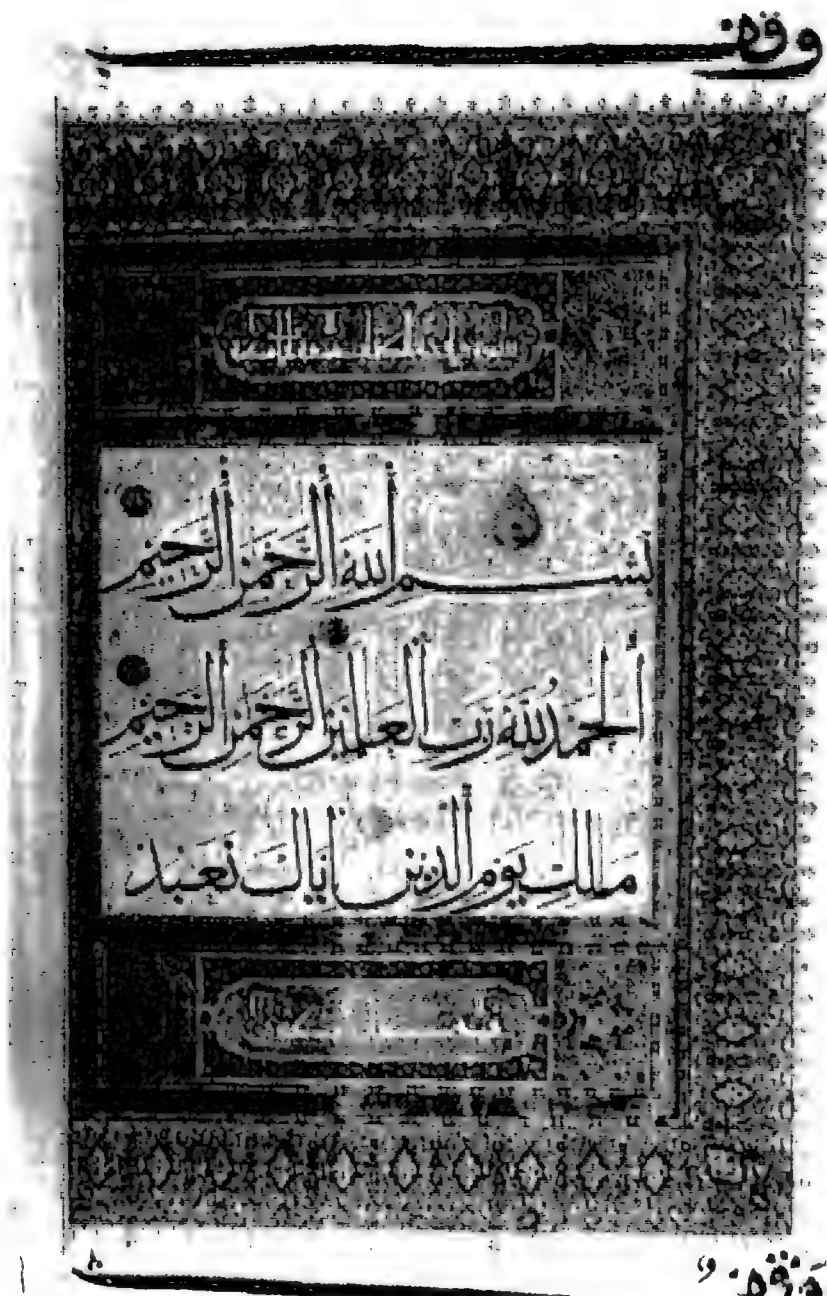 وقف
بسم الله الرحمن الرحيم
الحمد لله رب العلمين الرحمن الرحيم
ملك يوم الدين إياك نعبد
وقف